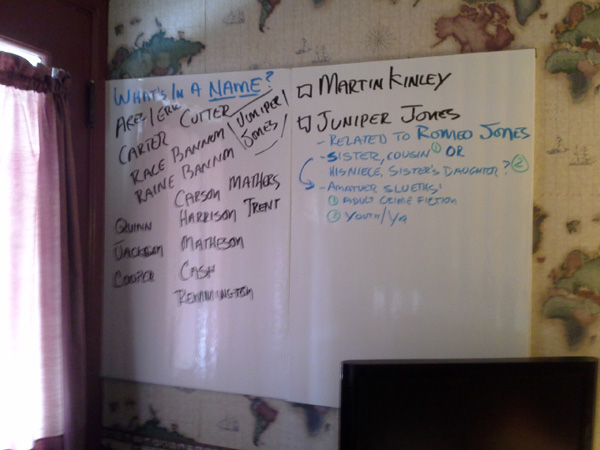 What's In A NAME?
ARES/ERIK CUTTER
CARTER
RACE BANNON
RAINE BANNON
JUNIPER
JONES
CARSON MATHERS
QUINN HARRISON TRENT
JACKSON MATHESON
COOPER CASH
REMMINGTON
MARTIN KINLEY
JUNIPER JONES
- RELATED TO ROMEO JONES
- SISTER, COUSIN ① OR
HIS NIECE, SISTER'S DAUGHTER? ②
- AMATUER SLUETHS:
① ADULT CRIME FICTION
② YOUTH/YA